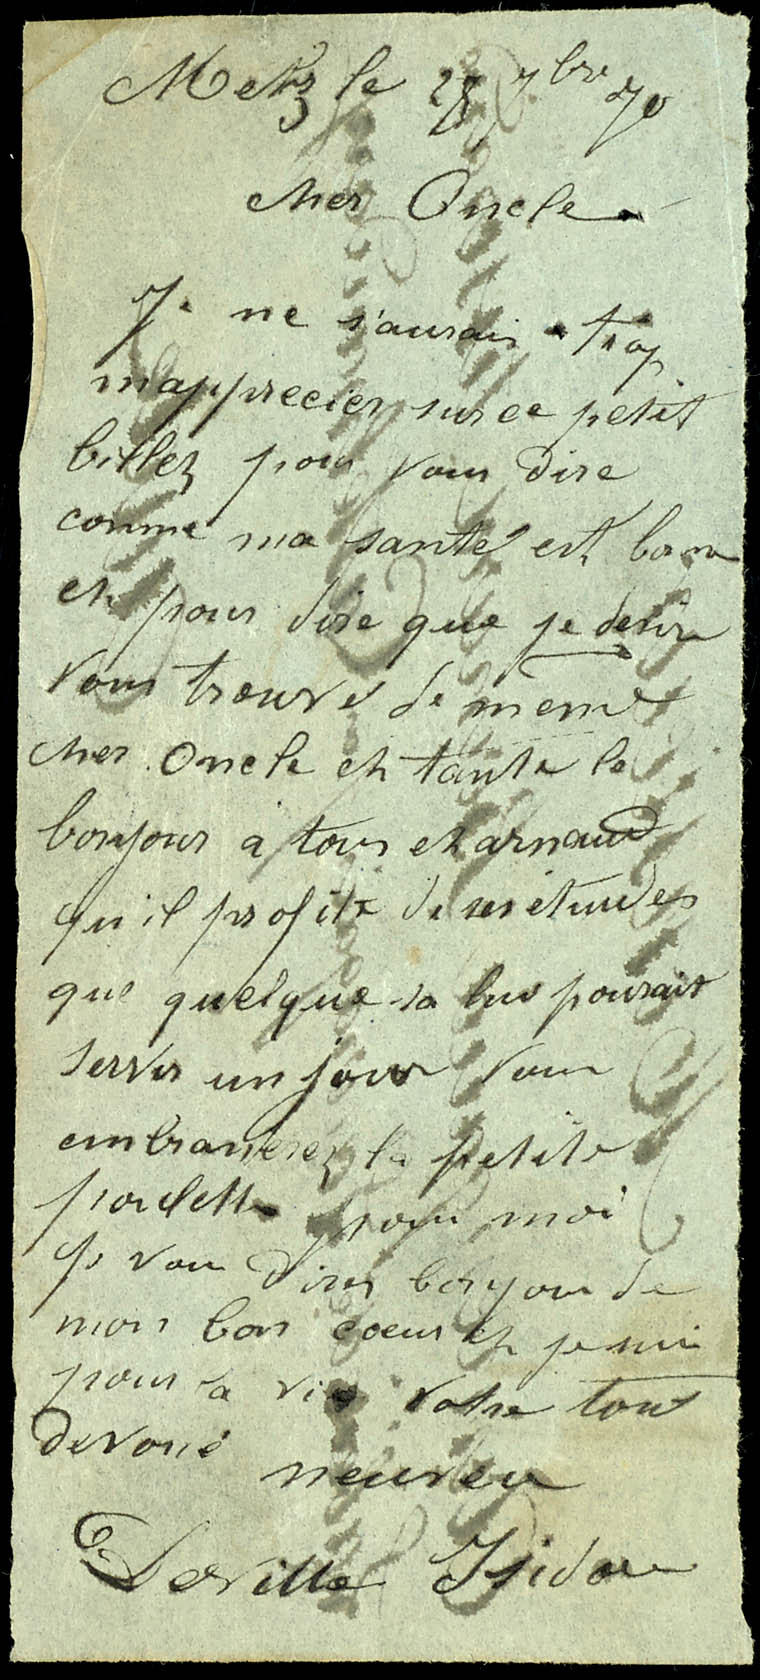 Metz le 28 7bre 70
cher Oncle
Je ne s'aurais trop
m'apprecier sur ce petit
billez pour vous dire
comme ma santé est bonn
et pour dire que je desire
vous trouver de meme
cher Oncle et tante le
bonjour a tous et arnaud
qu'il profite de ses étuudes
que quelque sa lui pourait
servir un jour vous
embrasserez la petite
poulette pour moi
je vous dires bonjour de
mon bon coeur et je suis
pour la vie votre tout
devoué
neuveu
Derville Isidore